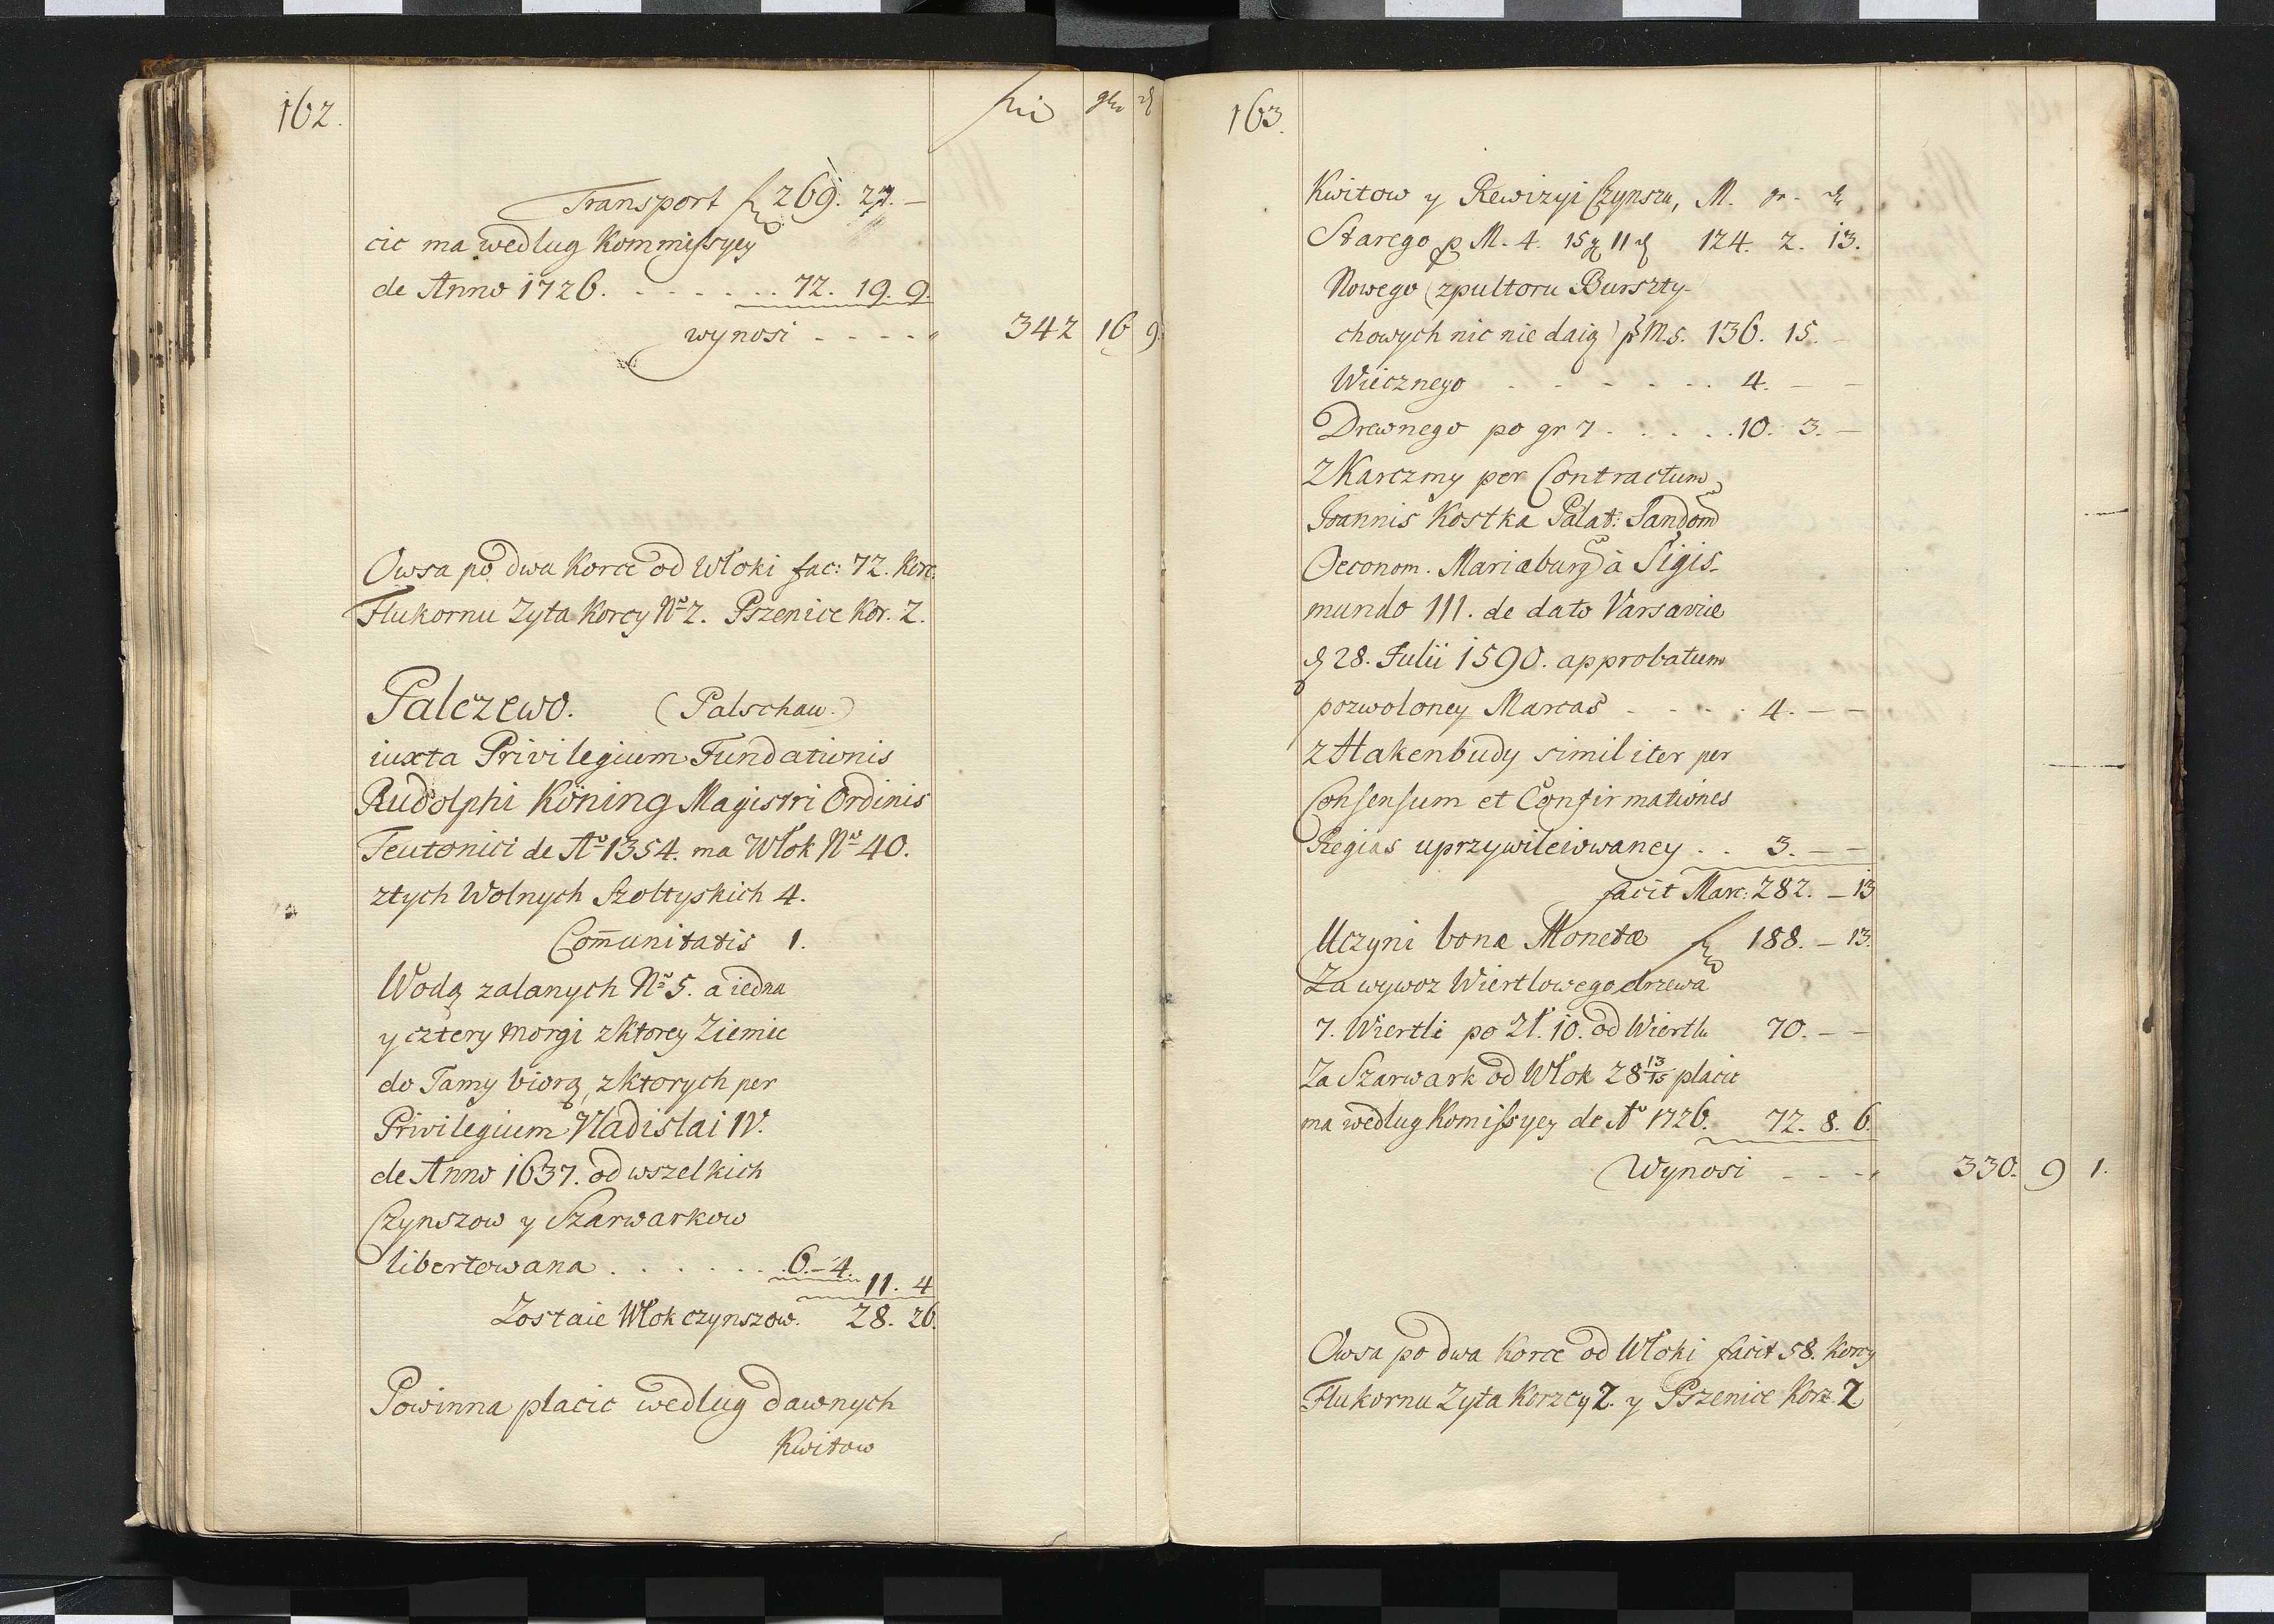 162.
fri gr ₰
Transport fr 269. 27. –
cic ma wedlug Kommissyey
de Anno 1726. . . . . . . 72. 19. 9.
wynosi . - - - - „ 342 16 9.
Owsa po dwa Korce od Włoki fac: 72. Korc.
Flukornu Zyta Korcy No 2. Pszenice Kor. 2.
Palczewo. (Palschau.)
iuxta Privilegium Fundationis
Rudolphi Köning Magistri Ordinis
Teutonici de Ao 1354. ma Włok No 40.
ztych Wolnych Szoltyskich 4.
Com̄unitatis 1.
Wodą zalanych No 5. a iedna
y cztery Morgi z Ktorey Ziemie
do Tamy biorą, z Ktorych per
Privilegium Vladislai IV.
de Anno 1637. od wszelkich
Czynszow y Szarwarkow
libertowana . . . . . . . 6. – 4.
11. 4
Zostaie Włok czynszow. 28. 26.
Powinna placic wedlug dawnych
Kwitow
163.
Kwitow y Rewizyi Czynszu, M. gr. ₰
Starego p M. 4. 15 g 11 ₰ 124. 2. 13.
Nowego (z pultoru Burszty-
chowych nic nie daią) p M. 5. 136. 15. –
Wiecznego . - - - - . . 4. – –
Drewnego po gr 7 . . . . . 10. 3. –
Z Karczmy per Contractum
Joannis Kostka Palat: Sandom
Oeconom. Mariæburg à Sigis-
mundo III. de dato Varsaviæ
₰ 28. Julii 1590. approbatum
pozwoloney Marcas - - - . 4. – –
z Hakenbudy similiter per
Consensum et Confirmationes
Regias uprzywileiowaney . . 3. – –
facit Marc: 282. – 13
Uczyni bonæ Monetæ fr 188. – 13.
Za wywoz Wiertlowego drzewa
7. Wiertli po Zł. 10. od Wiertlu 70. – –
Za Szarwark od Włok 28 13/15 placic
ma wedlug Komissyey de Ao 1726. 72. 8. 6.
Wynosi - - - „ 330. 9 1.
Owsa po dwa Korce od Włoki facit 58. Korcy
Flukornu Zyta Korzcy 2. y Pszenice Korz. 2